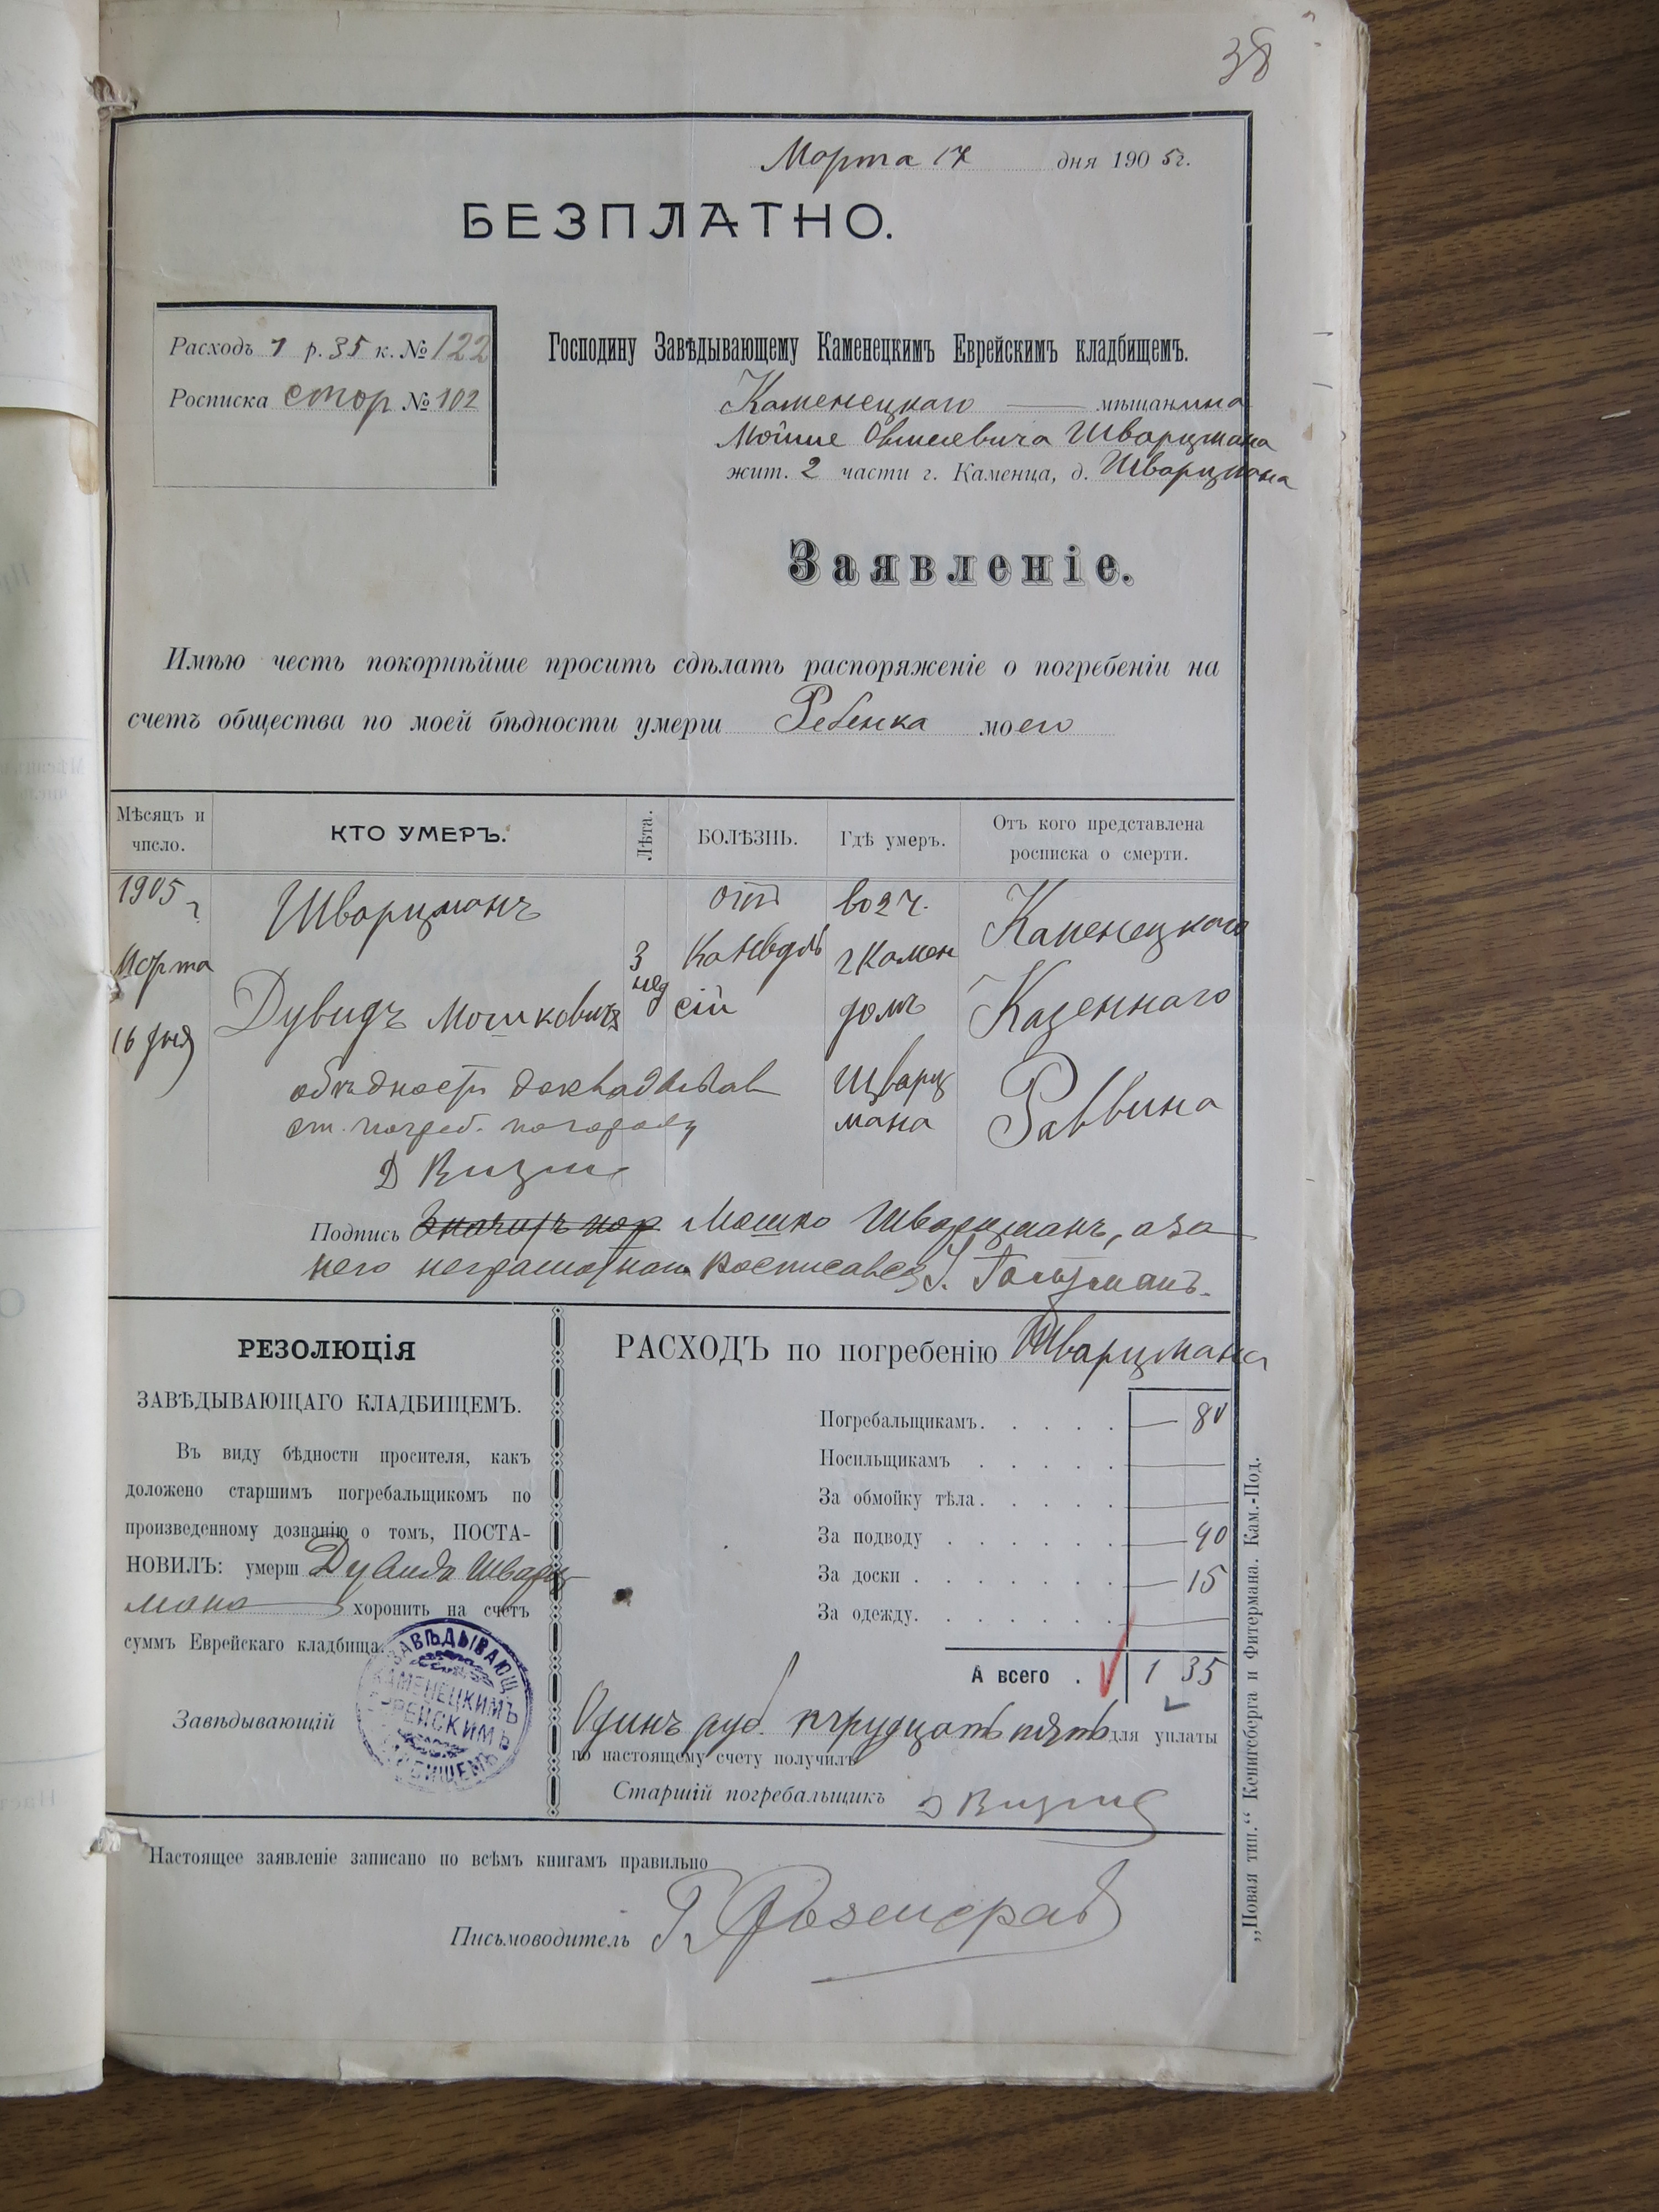 38
Марта 17 дня 1905 г.
БЕЗПЛАТНО.
Расходъ 1 р. 35 к. № 122
Росписка стор № 102
Господину Завѣдывающему Каменецкимъ Еврейскимъ кладбищемъ.
Каменецкаго мѣщанина
Мойше Шварцмана
жит. 2 части г. Каменца, д. Шварцмана
Заявленіе.
Имѣю честь покорнѣйше просить сдѣлать распоряженіе о погребеніи на
счетъ общества по моей бѣдности умерш Ребенка моего
Мѣсяцъ и число.
КТО УМЕРЪ.
Лѣта.
БОЛѢЗНЬ.
Гдѣ умеръ.
Отъ кого представлена росписка о смерти.
1905 г Шварцманъ отъ во 2 ч. Каменецкаго
Марта 3 нед Конвуль г Камен
16 дня Дувидъ Мошковичъ сій домъ Казеннаго
Шварц
мана Раввина
ст. погреб.
Д Визне
Подпись Мошко Шварцманъ, а за
него неграмотнаго росписался
РЕЗОЛЮЦІЯ
ЗАВѢДЫВАЮЩАГО КЛАДБИЩЕМЪ.
Въ виду бѣдности просителя, какъ
доложено старшимъ погребальщикомъ по
произведенному дознанію о томъ, ПОСТА-
НОВИЛЪ: умерш Дувида Шварц
мана хоронить на счетъ
суммъ Еврейскаго кладбища.
Завѣдывающій
ЗАВѢДЫВАЮЩ
КАМЕНЕЦКИМЪ
ЕВРЕЙСКИМЪ
РАСХОДЪ по погребенію Шварцмана
Погребальщикамъ. — 80
Носильщикамъ —
За обмойку тѣла. —
За подводу — 40
За доски . — 15
За одежду. —
А всего . 1 35
Одинъ руб. тридцать пять для уплаты
по настоящему счету получилъ
Старшій погребальщикъ Д Визне
Настоящее заявленіе записано по всѣмъ книгамъ правильно
Письмоводитель
„Новая тип.“ Кенигсберга и Фитермана. Кам.-Под.